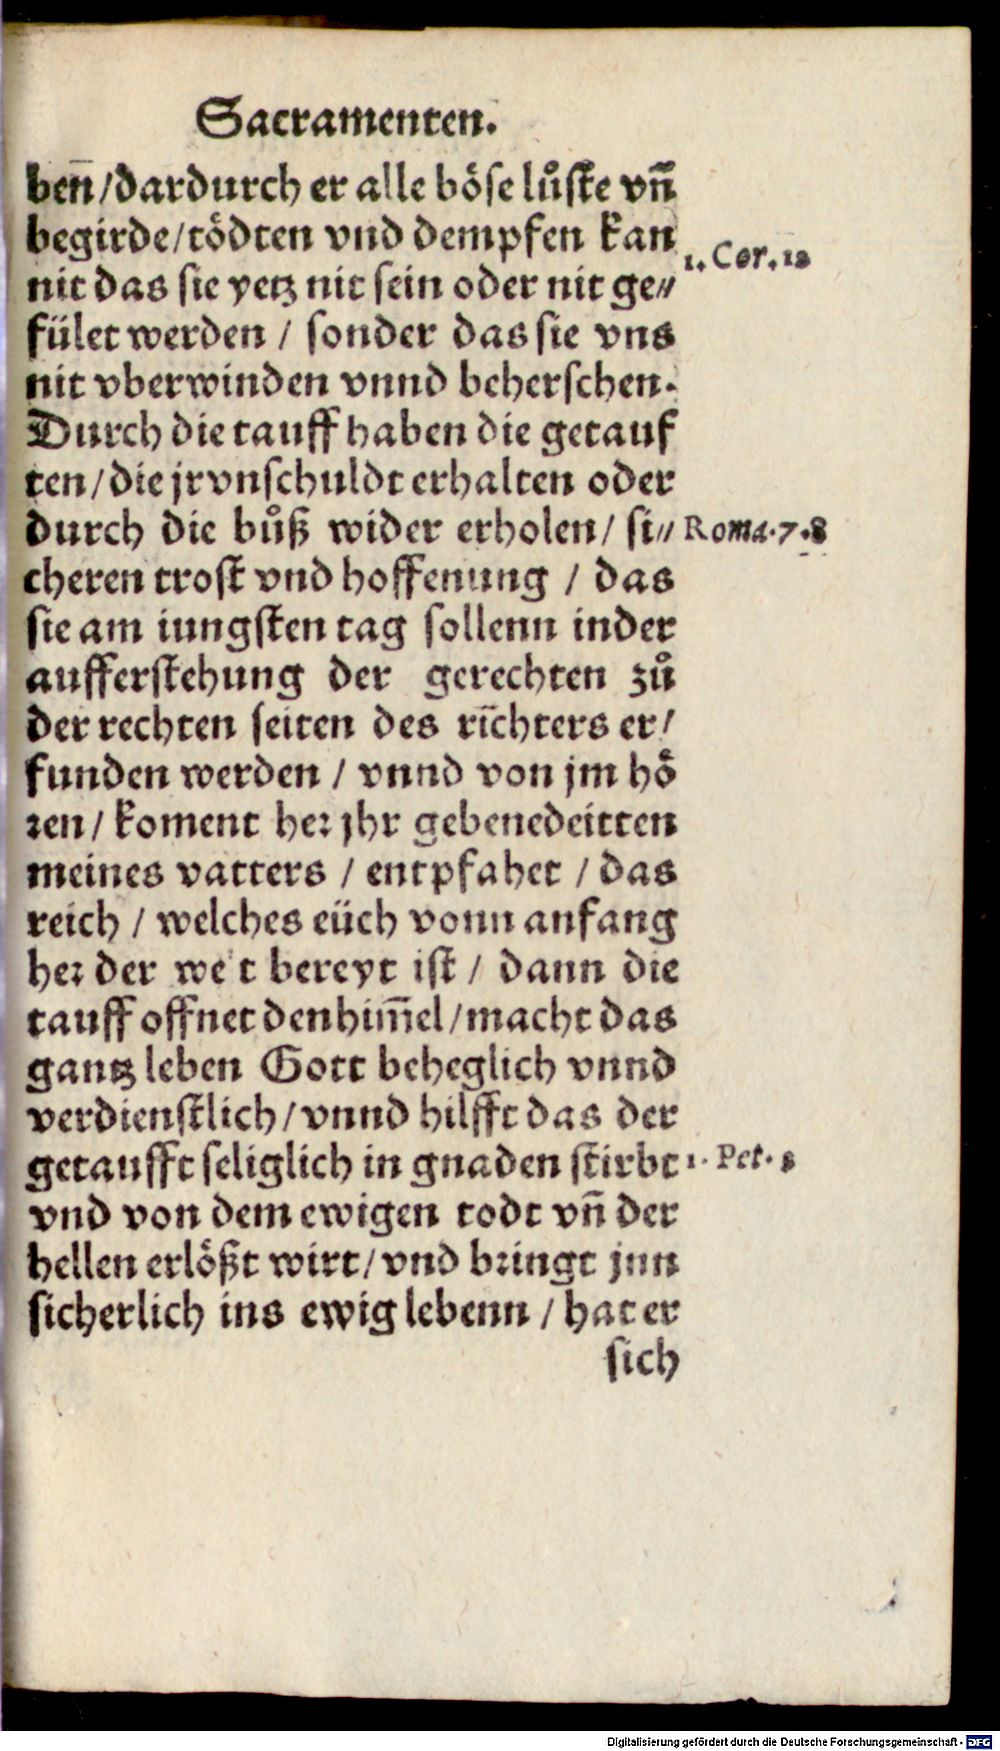 Sacramenten.
ben̄ / dardurch er alle böse lůste vn̄
begirde / tödten vnd dempfen kan
1. Cor. 12
nit das sie yetz nit sein oder nit ge⸗
fület werden / sonder das sie vns
nit vberwinden vnnd beherschen.
Durch die tauff haben die getauf
ten / die jr vnschuldt erhalten oder
durch die bůß wider erholen / si⸗
Roma. 7. 8
cheren trost vnd hoffenung / das
sie am iungsten tag sollenn inder
aufferstehung der gerechten zů
der rechten seiten des richters er/
funden werden / vnnd von jm hö
ren / koment her jhr gebenedeitten
meines vatters / entpfahet / das
reich / welches eüch vonn anfang
her der we t bereyt ist / dann die
tauff offnet den him̄el / macht das
gantz leben Gott beheglich vnnd
verdienstlich / vnnd hilfft das der
getaufft seliglich in gnaden stirbt
1. Pet. 3
vnd von dem ewigen todt vn̄ der
hellen erlößt wirt / vnd bringt jnn
sicherlich ins ewig lebenn / hat er
sich
Digitalisierung gefördert durch die Deutsche Forschungsgemeinschaft - DFG